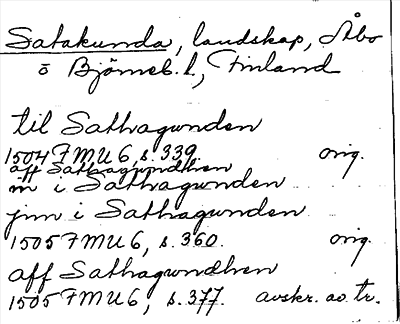 Satakunda, landskap, Åbo
o Björneb. l., Finland
til Sathagunden
1504 FMU 6, s. 339. orig.
aff Sathagundhen
in i Sathagunden
jnn i Sathagunden
1505 FMU 6, s. 360. orig.
aff Sathagundhen
1505 FMU 6, s. 377. avskr. av tr.